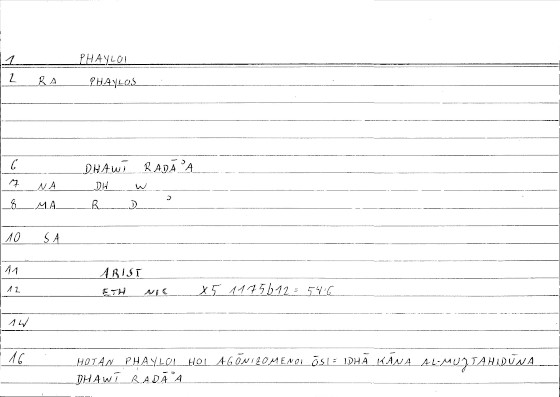 1 PHAYLOI
2 RA PHAYLOS
6 DHAWĪ RADĀʾA
7 NA DH W
8 MA R D ʾ
10 SA
11 ARIST
12 ETH NIC X5 1175b12 = 54:6
14
16 HOTAN PHAYLOI HOI AGŌNIZOMENOI ŌSI = IDHĀ KĀNA AL-MUJTAHIDŪNA
DHAWĪ RADĀʾA